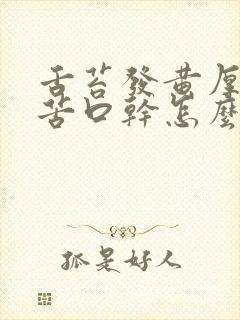 舌苔發黃厚
苦口幹怎麼
孤是好人